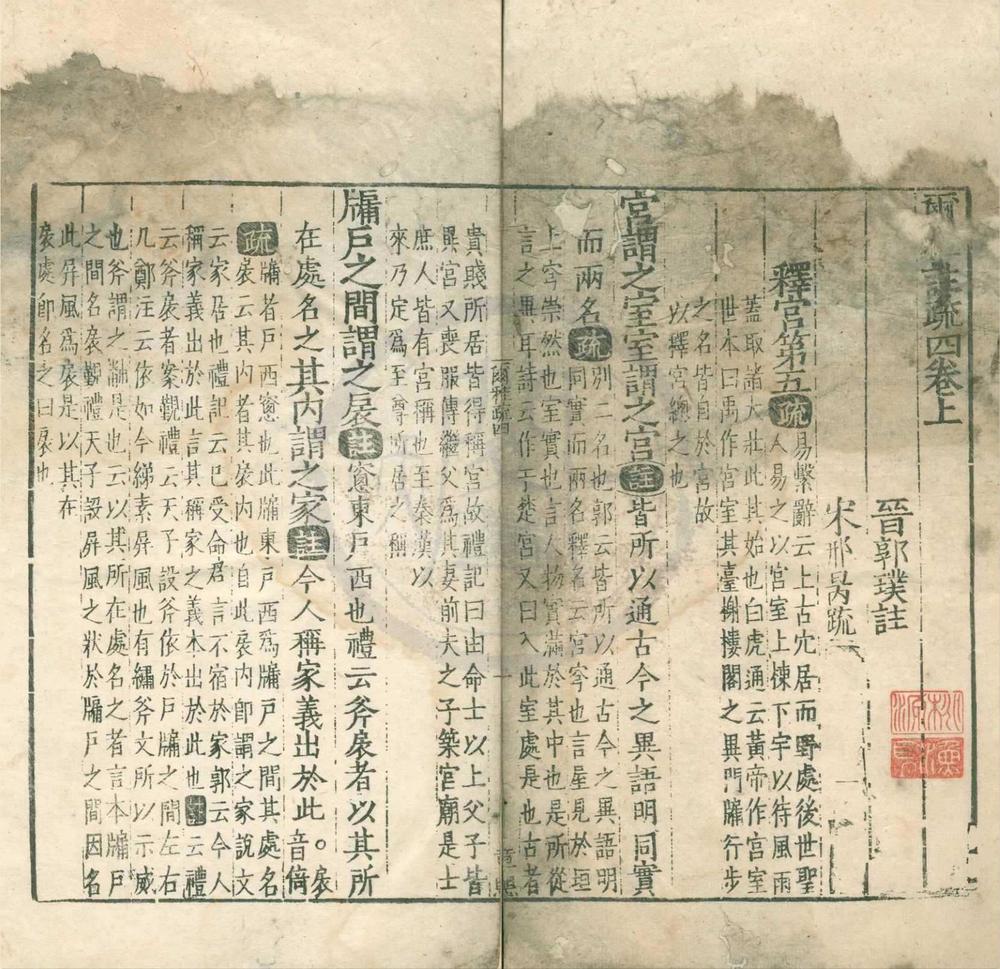 爾註疏四卷上
晉郭璞註
宋邢昺疏
釋宮第五疏易繫辭云上古穴居而野處後世聖
人易之以宮室上棟下宇以待風雨
蓋取諸大壯此其始也白虎通云黃帝作宮室
世本曰禹作宮室其臺榭樓閣之異門牖行步
之名皆自於宮故
以釋宮總之也
宮謂之室室謂之宮註皆所以通古今之異語明同實
而兩名疏別二名也郭云皆所以通古今之異語明
同實而兩名釋名云宮穹也言屋見於垣
上穹崇然也室實也言人物實滿於其中也是所從
言之異耳詩云作于楚宮又曰入此室處是也古者
爾雅疏四
一
貴賤所居皆得稱宮故禮記曰由命士以上父子皆
異宮又喪服傳繼父爲其妻前夫之子築宮廟是士
庶人皆有宮稱也至秦漢以
來乃定爲至尊所居之稱
牖戶之間謂之扆註窻東戶西也禮云斧扆者以其所
在處名之其內謂之家註今人稱家義出於此。扆音倚
疏牖者戶西窻也此牖東戶西爲牖戶之間其處名
扆云其內者其扆內也自此扆內即謂之家說文
云家居也禮記云已受命君言不宿於家郭云今人
稱家義出於此言其稱家之義本出於此也註云禮
云斧扆者案覲禮云天子設斧依於戶牖之間左右
几鄭注云依如今綈素屏風也有繡斧文所以示威
也斧謂之黼是也云以其所在處名之者言本牖戶
之間名扆覲禮天子設屏風之狀於牖戶之間因名
此屏風爲扆是以其在
扆處即名之曰扆也